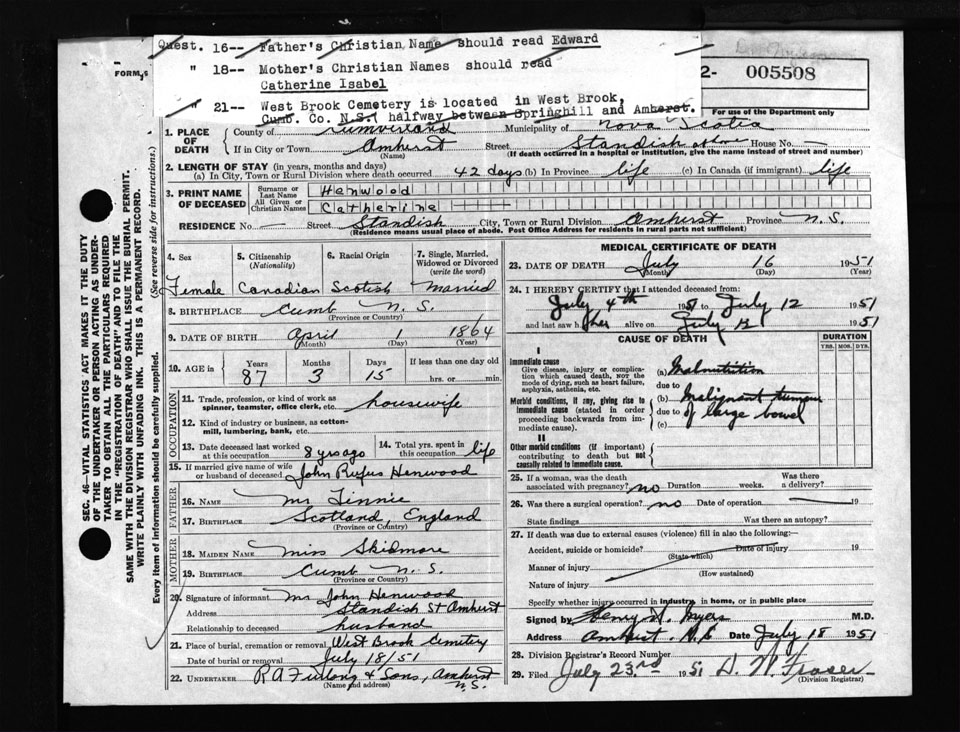 Quest. 16-- Father's Christian Name should read Edward
" 18-- Mother's Christian Names should read
Catherine Isabel
" 21-- West Brook Cemetery is located in West Brook,
Cumb. Co. N.S. halfway between Springhill and Amherst.
FORM
2- 005508
For use of the Department only
1. PLACE OF DEATH
County of Cumberland Municipality of Nova Scotia
If in City or Town Amherst (Name) Street Standish House No. —
(If death occurred in a hospital or institution, give the name instead of street and number)
2. LENGTH OF STAY (in years, months and days)
(a) In City, Town or Rural Division where death occurred 42 days (b) In Province life (c) In Canada (if immigrant) life
3. PRINT NAME OF DECEASED
Surname or Last Name Henwood
All Given or Christian Names Catherine
RESIDENCE No. — Street Standish City, Town or Rural Division Amherst Province N.S.
(Residence means usual place of abode. Post Office Address for residents in rural parts not sufficient)
4. Sex Female
5. Citizenship (Nationality) Canadian
6. Racial Origin Scotish
7. Single, Married, Widowed or Divorced (write the word) Married
8. BIRTHPLACE Cumb N.S.
(Province or Country)
9. DATE OF BIRTH April 1864
(Month) (Day) (Year)
10. AGE in Years 87 Months 3 Days 15 If less than one day old hrs. or min.
OCCUPATION
11. Trade, profession, or kind of work as spinner, teamster, office clerk, etc. housewife
12. Kind of industry or business, as cotton-mill, lumbering, bank, etc.
13. Date deceased last worked at this occupation 8 yrs ago
14. Total yrs. spent in this occupation life
15. If married give name of wife or husband of deceased John Rufus Henwood
FATHER
16. NAME Mr Tinnie
17. BIRTHPLACE Scotland, England
(Province or Country)
MOTHER
18. MAIDEN NAME Miss Skidmore
19. BIRTHPLACE Cumb N.S.
(Province or Country)
20. Signature of informant Mr John Henwood
Address Standish St Amherst
Relationship to deceased husband
21. Place of burial, cremation or removal West Brook Cemetery
Date of burial or removal July 18/51
22. UNDERTAKER R A Furlong & Sons, Amherst N.S.
(Name and address)
MEDICAL CERTIFICATE OF DEATH
23. DATE OF DEATH July 16 1951
(Month) (Day) (Year)
24. I HEREBY CERTIFY that I attended deceased from:
July 4th 1951 to July 12 1951
and last saw her alive on July 12 1951
CAUSE OF DEATH
DURATION
YRS. MOS. DYS.
I
Immediate cause
Give disease, injury or complication which caused death, not the mode of dying, such as heart failure, asphyxia, asthenia, etc.
(a) Malnutrition
due to
Morbid conditions, if any, giving rise to immediate cause (stated in order proceeding backwards from immediate cause).
(b) Malignant tumour
due to of large bowel
(c)
II
Other morbid conditions (if important) contributing to death but not causally related to immediate cause.
25. If a woman, was the death associated with pregnancy? no Duration weeks. Was there a delivery?
26. Was there a surgical operation? no Date of operation 19
State findings Was there an autopsy?
27. If death was due to external causes (violence) fill in also the following:—
Accident, suicide or homicide? Date of injury 19
(State which)
Manner of injury
(How sustained)
Nature of injury
Specify whether injury occurred in industry, in home, or in public place
Signed by M.D.
Address Amherst, N.S. Date July 18 1951
28. Division Registrar's Record Number
29. Filed July 23rd 1951 D. W. Fraser
(Division Registrar)
SEC. 46—VITAL STATISTICS ACT MAKES IT THE DUTY
OF THE UNDERTAKER OR PERSON ACTING AS UNDER-
TAKER TO OBTAIN ALL THE PARTICULARS REQUIRED
IN THE "REGISTRATION OF DEATH" AND TO FILE THE
SAME WITH THE DIVISION REGISTRAR WHO SHALL ISSUE THE BURIAL PERMIT.
WRITE PLAINLY WITH UNFADING INK. THIS IS A PERMANENT RECORD.
Every item of information should be carefully supplied. (See reverse side for instructions.)